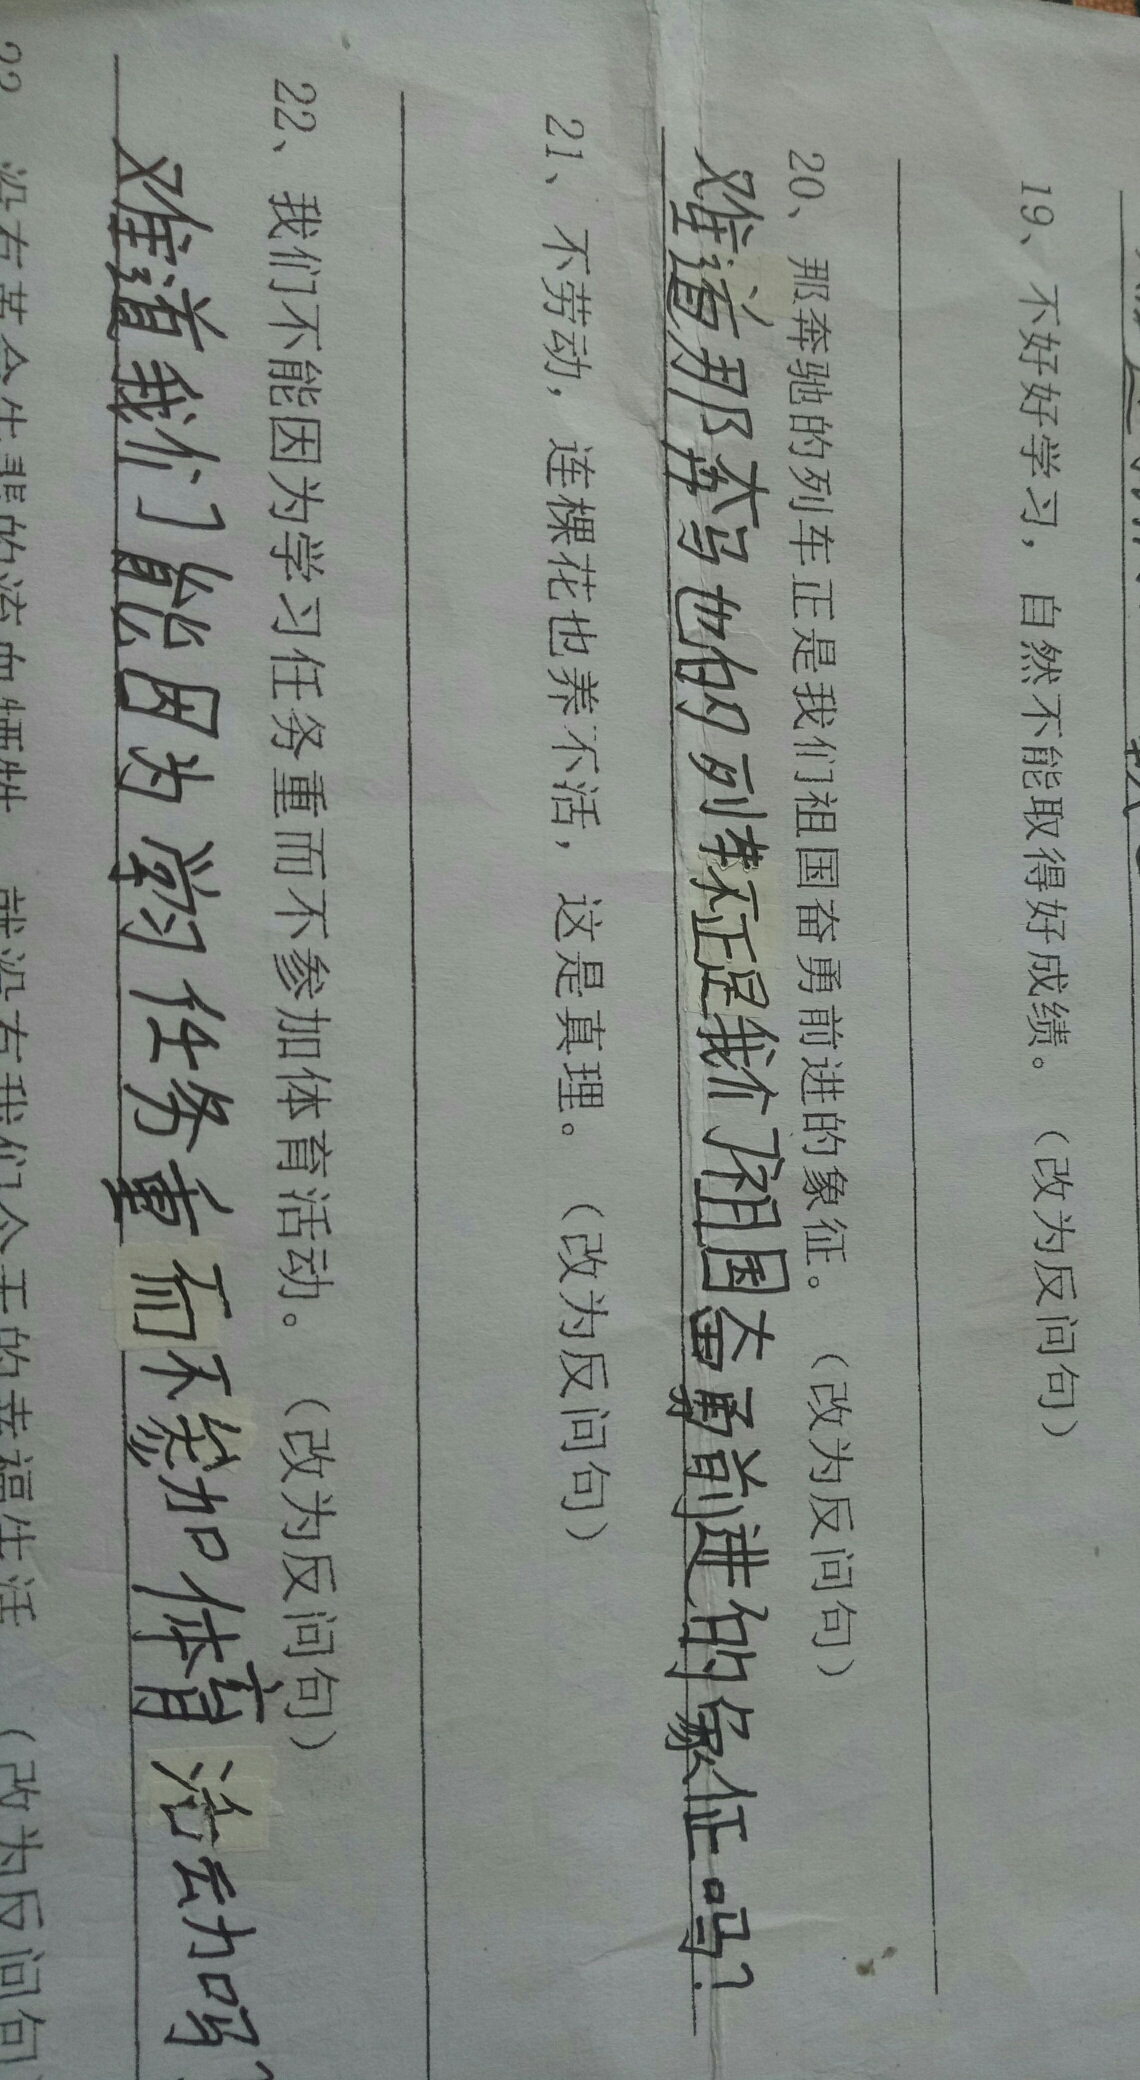 19、不好好学习，自然不能取得好成绩。（改为反问句）
20、那奔驰的列车正是我们祖国奋勇前进的象征。（改为反问句）
难道那奔驰的列车不正是我们祖国奋勇前进的象征吗？
21、不劳动，连棵花也养不活，这是真理。（改为反问句）
22、我们不能因为学习任务重而不参加体育活动。（改为反问句）
难道我们能因为学习任务重而不参加体育活动吗？
没有革命先辈的流血牺牲，就没有我们今天的幸福生活（改为反问句）